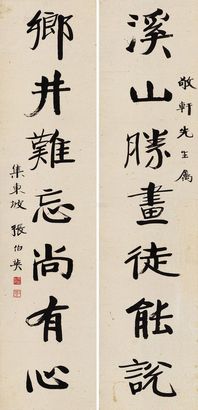 敬軒先生屬
溪山勝畫徒能說
鄉井難忘尚有心
集東坡 張伯英